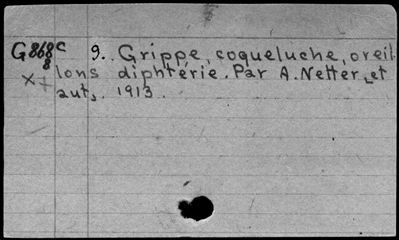 G868c 9. Grippe, coqueluche, oreil-
8 lons diphtérie. Par A. Netter, et
x+ aut. 1913.